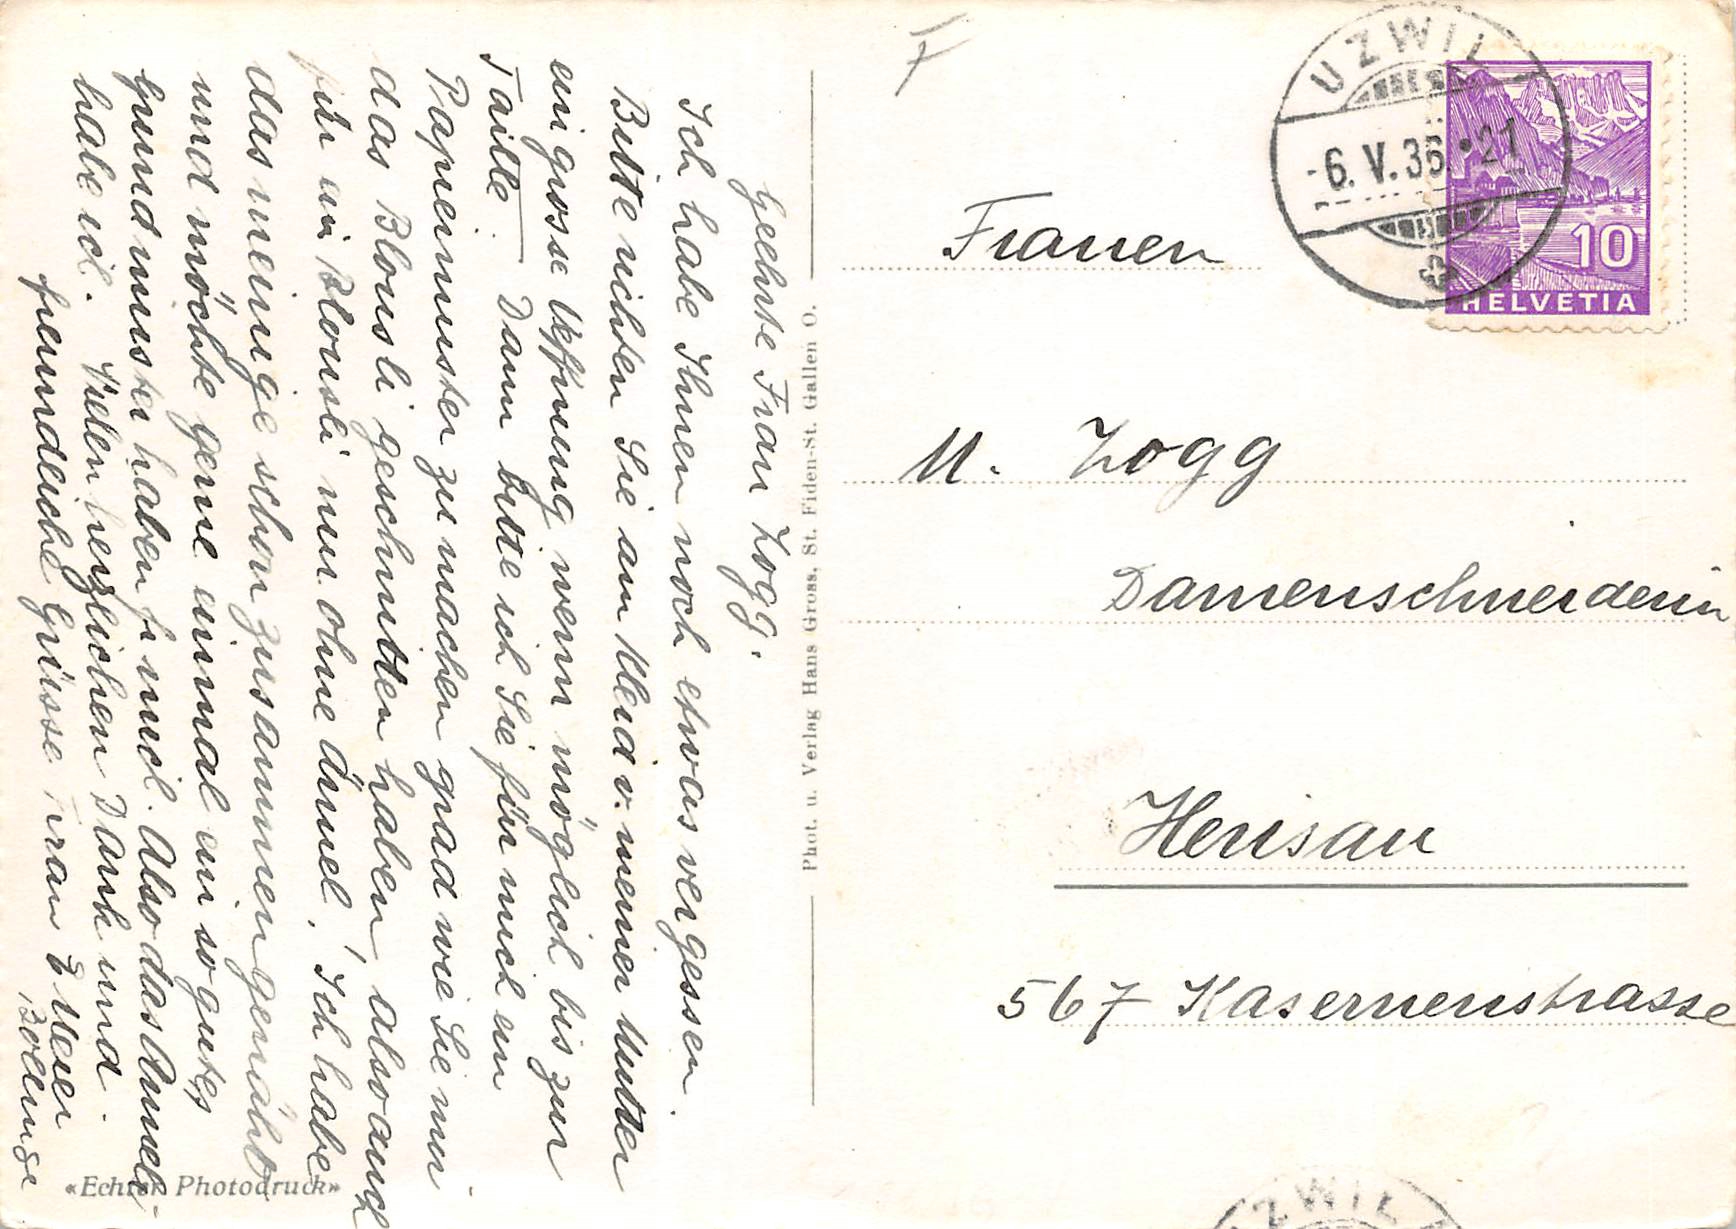 Geehrte Frau Zogg.
Ich habe Ihnen noch etwas vergessen.
Bitte richten Sie am Kleid v. meiner Mutter
ein grosse Öffnung wenn möglich bis zur
Taille. Dann bitte ich Sie für mich ein
Papiermuster zu machen grad wie Sie mir
das Blousli geschnitten haben also auch
für ein Blousli nur ohne Ärmel. Ich habe
das meinige schon zusammengenäht
und möchte gerne einmal ein so gutes
Grundmuster haben f. mich. Also das Ärmel-
habe ich. Vielen herzlichen Dank und
freundliche Grüsse Frau E Meier
F
Frauen
M. Zogg
Damenschneiderin
Herisau
567 Kasernenstrasse
UZWIL
-6. V. 36.•21
10
HELVETIA
Phot. u. Verlag Hans Gross, St. Fiden-St. Gallen O.
«Echter Photodruck»
UZWIL